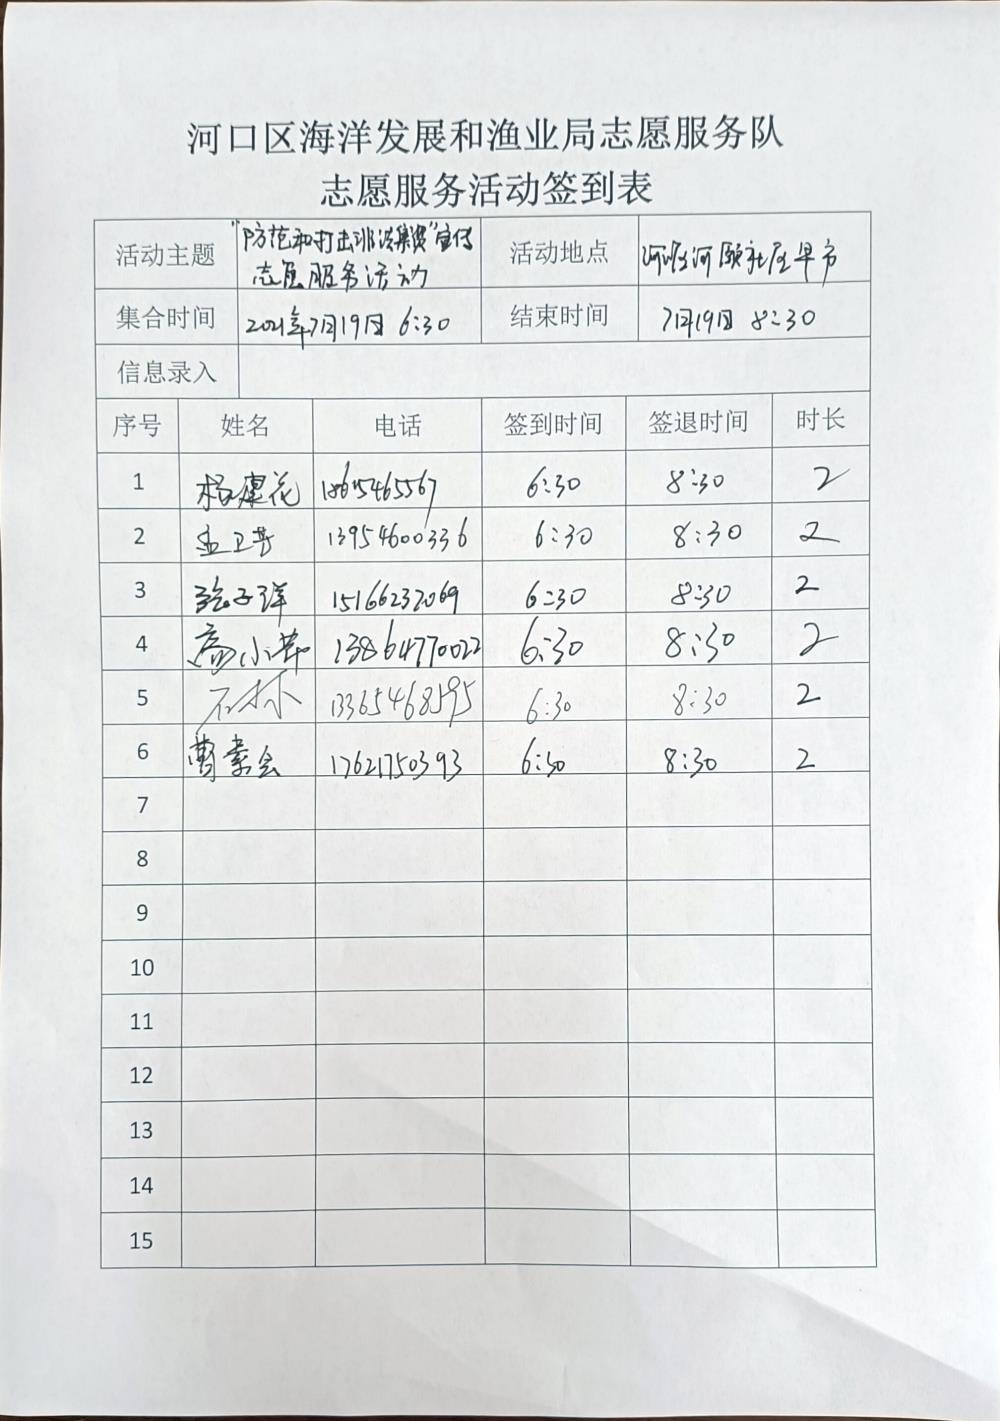 河口区海洋发展和渔业局志愿服务队
志愿服务活动签到表
活动主题 "防范和打击非法集资"宣传 志愿服务活动 活动地点 河颐社区早市
集合时间 2021年7月19日 6:30 结束时间 7月19日 8:30
信息录入
序号 姓名 电话 签到时间 签退时间 时长
1 6:30 8:30 2
2 孟卫芳 13954600336 6:30 8:30 2
3 15166232069 6:30 8:30 2
4 高小华 13864770022 6:30 8:30 2
5 石林 13365468595 6:30 8:30 2
6 曹素会 17621750393 6:30 8:30 2
7
8
9
10
11
12
13
14
15